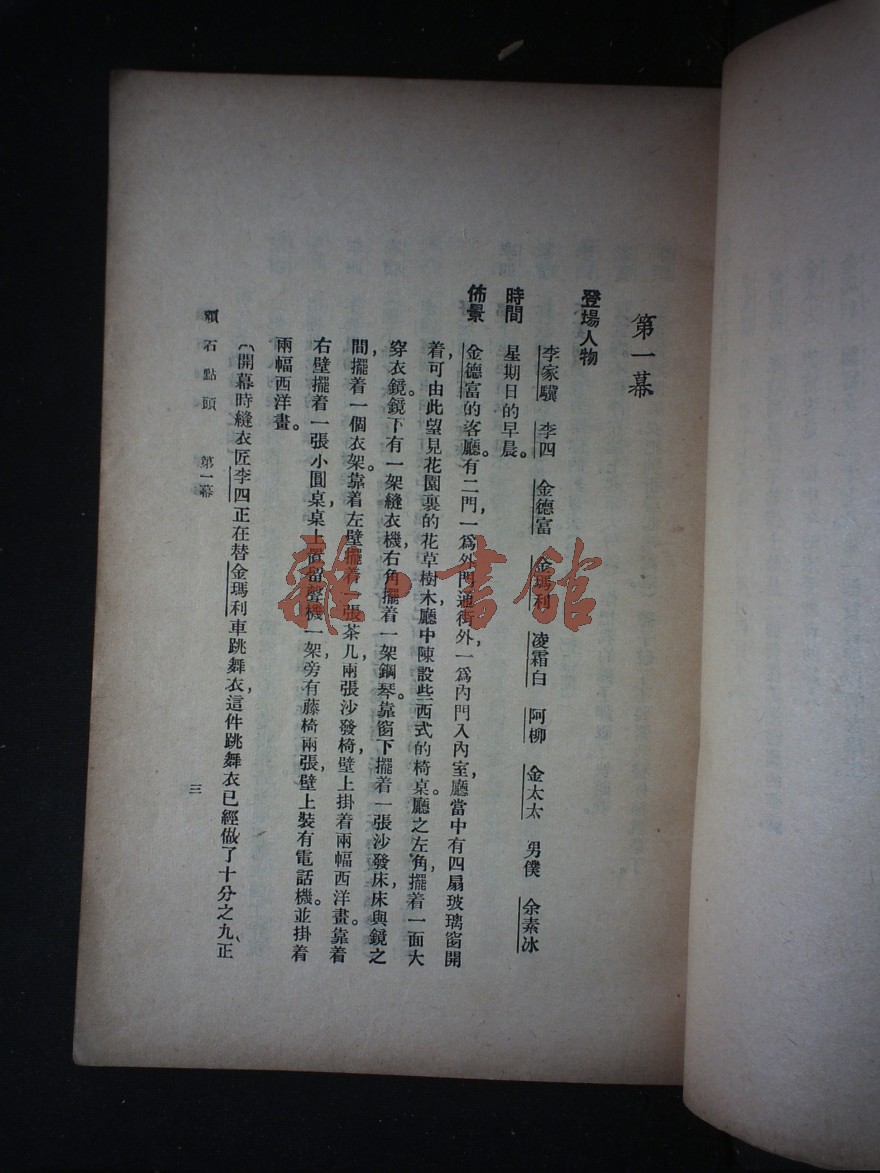 第一幕
登場人物
李家驥 李四 金德富 金瑪利 凌霜白 阿柳 金太太 男僕 余素冰
時間 星期日的早晨。
佈景 金德富的客廳。有二門,一爲外門通街外一爲內門入內室,廳當中有四扇玻璃窗開
着,可由此望見花園裏的花草樹木,廳中陳設些西式的椅桌。廳之左角,擺着一面大
穿衣鏡。鏡下有一架縫衣機,右角擺着一架鋼琴。靠窗下擺着一張沙發床,床與鏡之
間,擺着一個衣架。靠着左壁擺着一張茶几,兩張沙發椅,壁上掛着兩幅西洋畫。靠着
右壁擺着一張小圓桌,桌上置留聲機一架,旁有藤椅兩張,壁上裝有電話機。並掛着
兩幅西洋畫。
〔開幕時縫衣匠李四正在替金瑪利車跳舞衣,這件跳舞衣已經做了十分之九、正
頑石點頭 第一幕
三
雜·書館